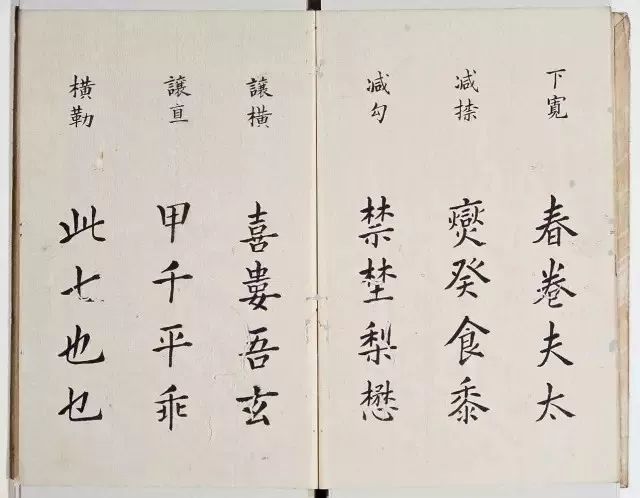 下寬
春卷夫太
减捺
燮癸食黍
减勾
禁埜梨懋
讓橫
喜婁吾玄
讓直
甲千平乖
橫勒
此七也乜